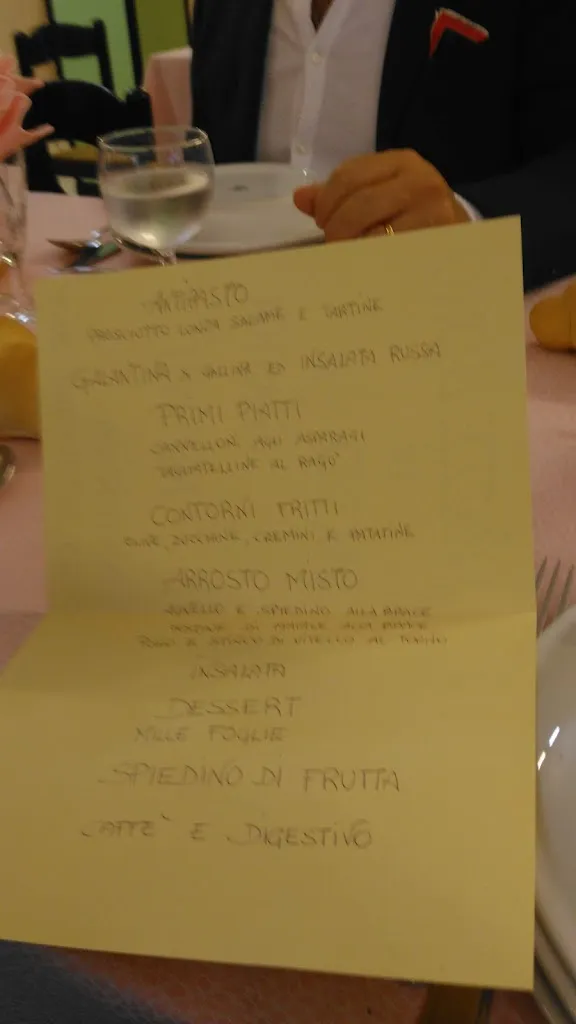 ANTIPASTO
PROSCIUTTO LONZA SALAME E TARTINE
GALANTINA X GALLINA ED INSALATA RUSSA
PRIMI PIATTI
CANNELLONI AGLI ASPARAGI
TAGLIATELLINE AL RAGU'
CONTORNI FRITTI
OLIVE, ZUCCHINE, CREMINI E PATATINE
ARROSTO MISTO
AGNELLO E SPIEDINO ALLA BRACE
DI MAIALE ALLA BRACE
POLLO E DI VITELLO AL
INSALATA
DESSERT
MILLE FOGLIE
SPIEDINO DI FRUTTA
CAFFE' E DIGESTIVO